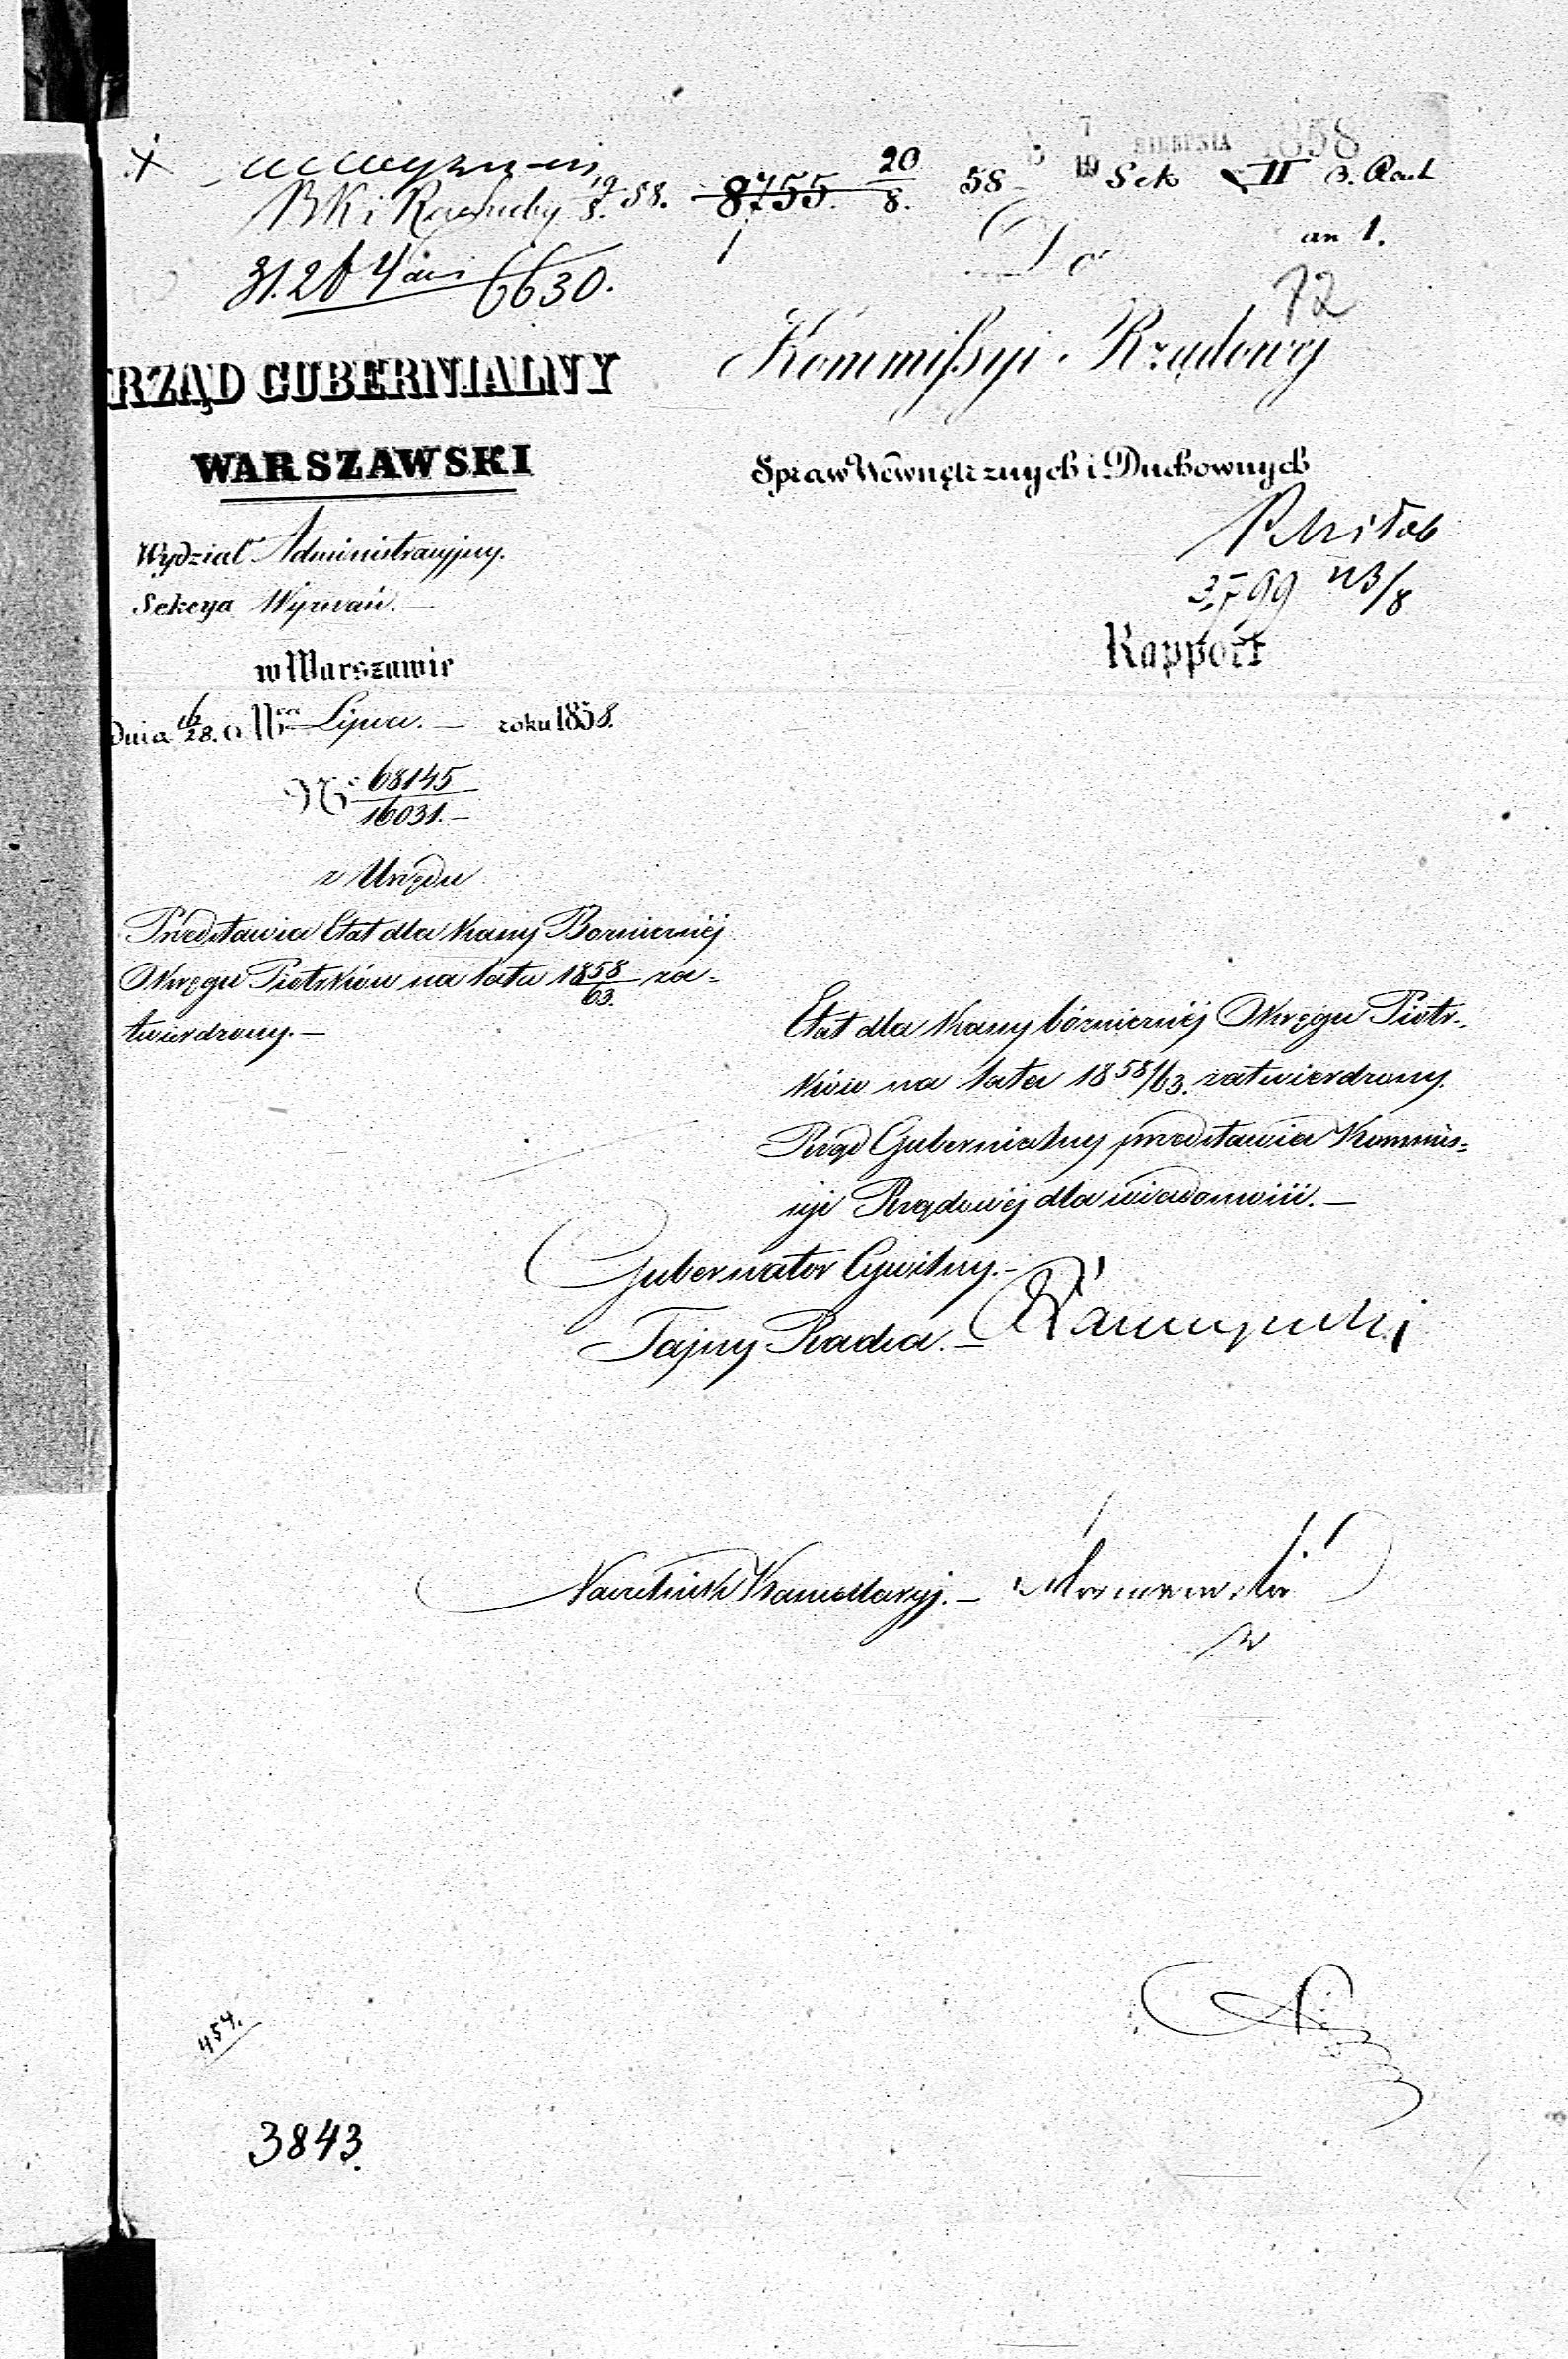 7
19 SIERPNIA 1858
8755. 20/8. 58 Sek II B. Rach
BK i Rachuby 19/8. 58.
an 1.
6630.
Do
72
RZĄD GUBERNIALNY
WARSZAWSKI
Kommißyi Rządowéj
Spraw Wewnętrznych i Duchownych
Wydział Administracyjny.
Sekcya Wyznań.—
3799 23/8
Rapport
w Warszawie
Dnia 16/28. Lipca.— roku 1858.
No 68145/16031.—
z Urzędu
Przedstawia Etat dla Kassy Bożniczéj
Okręgu Piotrków na lata 1858/63. za-
twierdzony.—
Etat dla Kassy bóżniczéj Okręgu Piotr-
ków na lata 1858/63. zatwierdzony.
Rząd Gubernialny przedstawia Kommis-
syi Rządowéj dla wiadomości.—
Gubernator Cywilny.—
Tajny Radca.—
Naczelnik Kancellaryi.—
454.
3843.